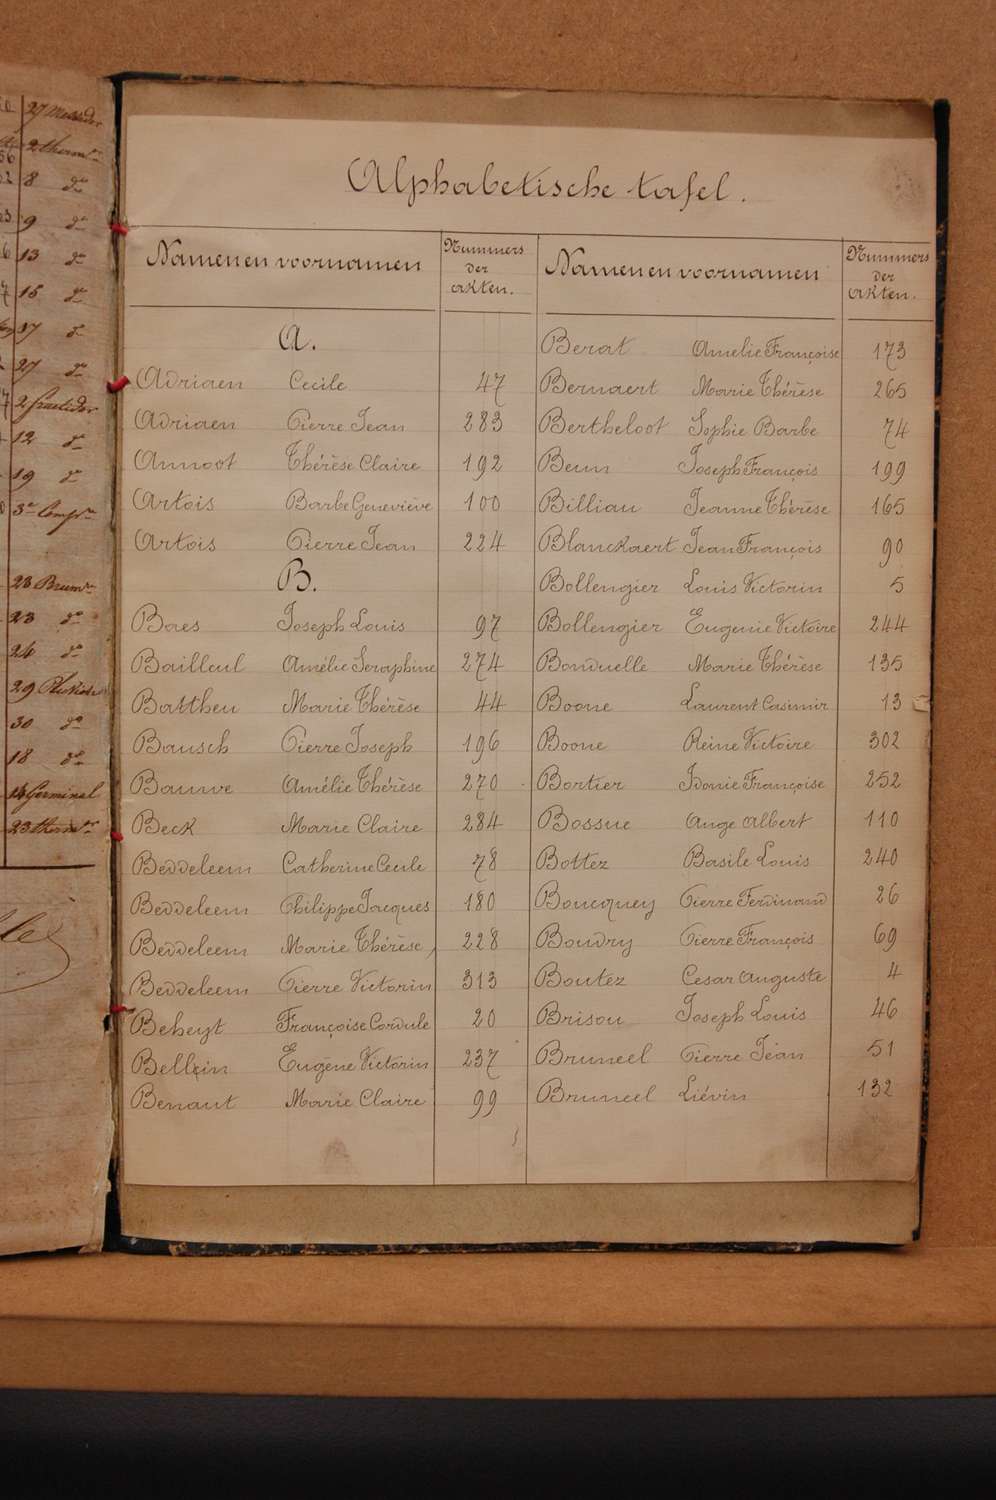 27 Messidor
2 therm.
8 do
9 do
13 do
15 do
17 do
27 do
2 fructidor
12 do
19 do
3e Comp.
23 Brum.
23 do
24 do
30 do
18 do
14 Germinal
23 therm.
Alphabetische tafel.
Namen en voornamen
Nummers
der
akten.
A.
Adriaen Cecile 47
Adriaen Pierre Jean 283
Annoot Thérèse Claire 192
Artois Barbe Geneviève 100
Artois Pierre Jean 224
B.
Baes Joseph Louis 97
Bailleul Amélie Seraphine 274
Battheu Marie Thérèse 44
Bausch Pierre Joseph 196
Bauwe Amélie Thérèse 270
Beck Marie Claire 284
Beddeleem Catherine Cecile 78
Beddeleem Philippe Jacques 180
Beddeleem Marie Thérèse 228
Beddeleem Pierre Victorin 313
Beheyt Françoise Cordule 20
Bellein Eugène Victorin 237
Benaut Marie Claire 99
Namen en voornamen
Nummers
der
akten.
Berat Amelie Françoise 173
Bernaert Marie Thérèse 265
Bertheloot Sophie Barbe 74
Beun Joseph François 199
Billiau Jeanne Thérèse 165
Blanckaert Jean François 90
Bollengier Louis Victorin 5
Bollengier Eugenie Victoire 244
Bonduelle Marie Thérèse 135
Boone Laurent Casimir 13
Boone Reine Victoire 302
Bortier Idonie Françoise 252
Bossue Ange Albert 110
Bottez Basile Louis 240
Boucquey Pierre Ferdinand 26
Boudry Pierre François 69
Boutez Cesar Auguste 4
Brisou Joseph Louis 46
Bruneel Pierre Jean 51
Bruneel Liévin 132